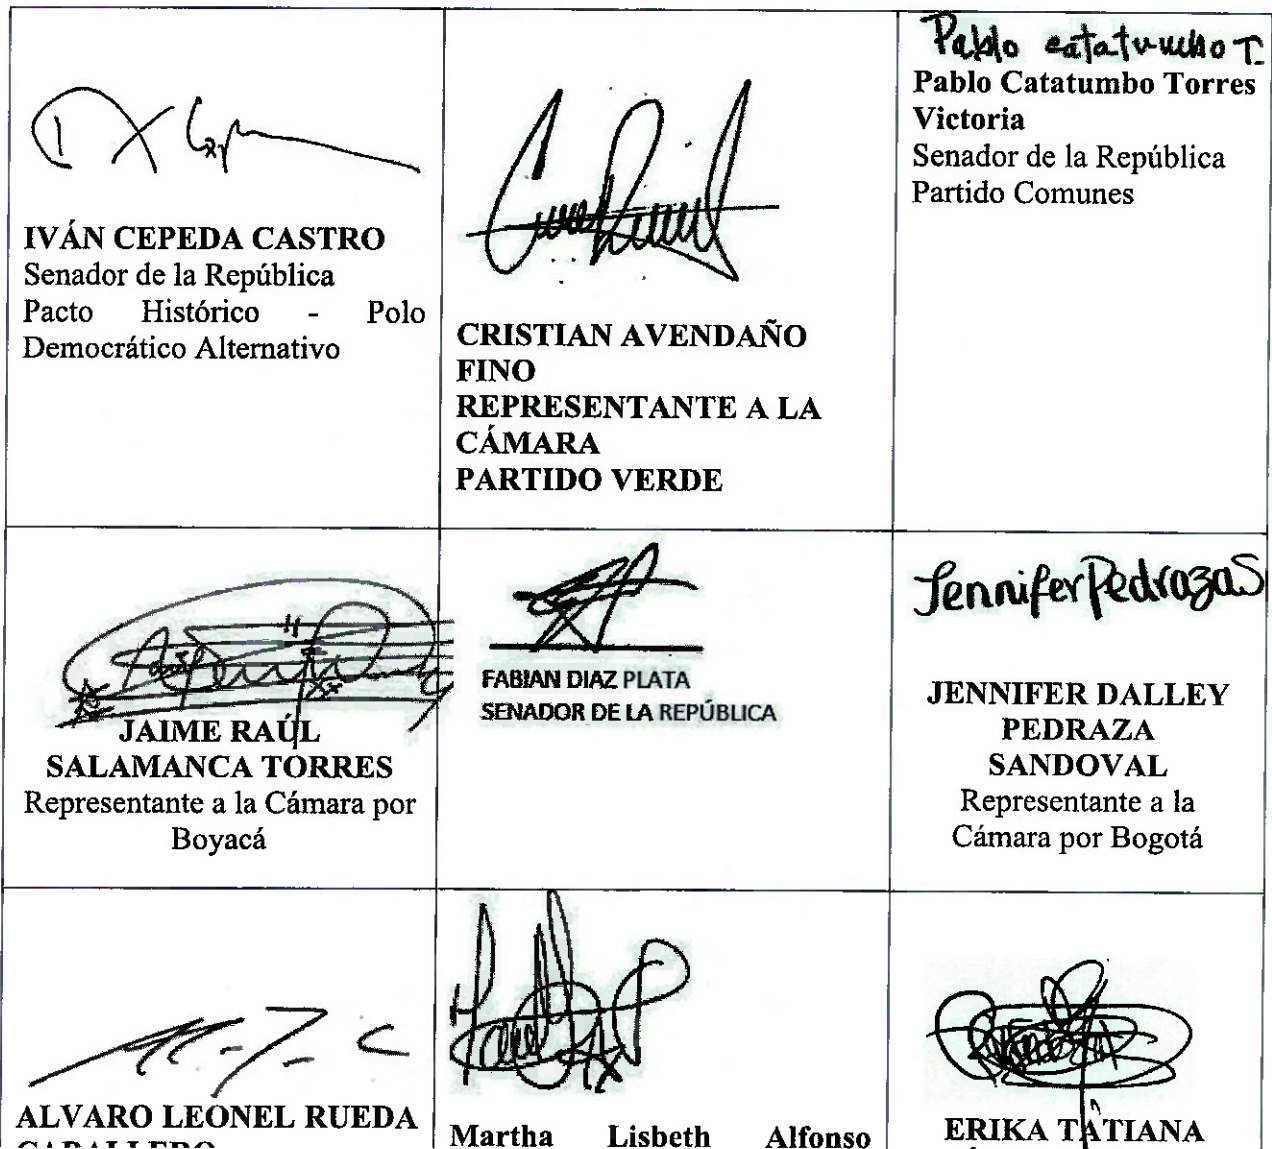 IVÁN CEPEDA CASTRO
Senador de la República
Pacto Histórico - Polo
Democrático Alternativo
CRISTIAN AVENDAÑO
FINO
REPRESENTANTE A LA
CÁMARA
PARTIDO VERDE
Pablo Catatumbo T.
Pablo Catatumbo Torres
Victoria
Senador de la República
Partido Comunes
JAIME RAÚL
SALAMANCA TORRES
Representante a la Cámara por
Boyacá
FABIAN DIAZ PLATA
SENADOR DE LA REPÚBLICA
Jennifer Pedraza S
JENNIFER DALLEY
PEDRAZA
SANDOVAL
Representante a la
Cámara por Bogotá
ALVARO LEONEL RUEDA
CABALLERO
Martha Lisbeth Alfonso
ERIKA TATIANA